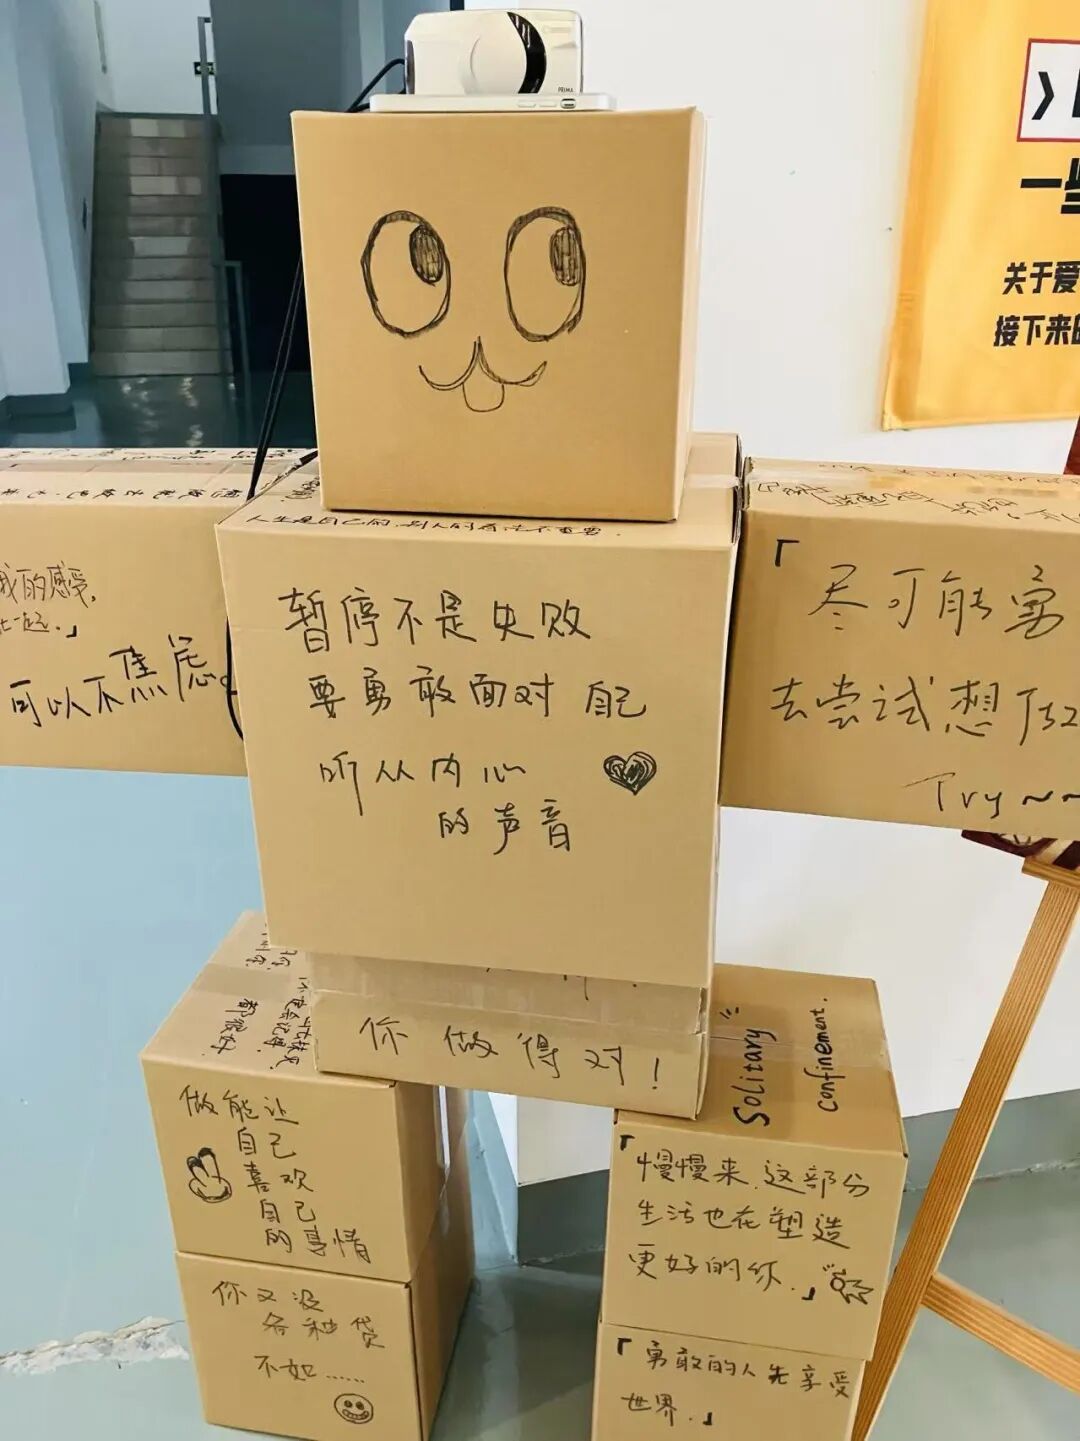 PRIMA
一些
关于爱
接下来的
人生是自己的,别人的看法不重要.
我的感受,
一起.」
可以不焦虑。
暂停不是失败
要勇敢面对自己
听从内心
的声音
「尽可能勇
去尝试想
Try~~
你做得对!
都很好
做能让
自己
喜欢
自己
的事情
你又没
各种贷
不如……
Solitary
confinement.
「慢慢来,这部分
生活也在塑造
更好的你.」
「勇敢的人先享受
世界.」